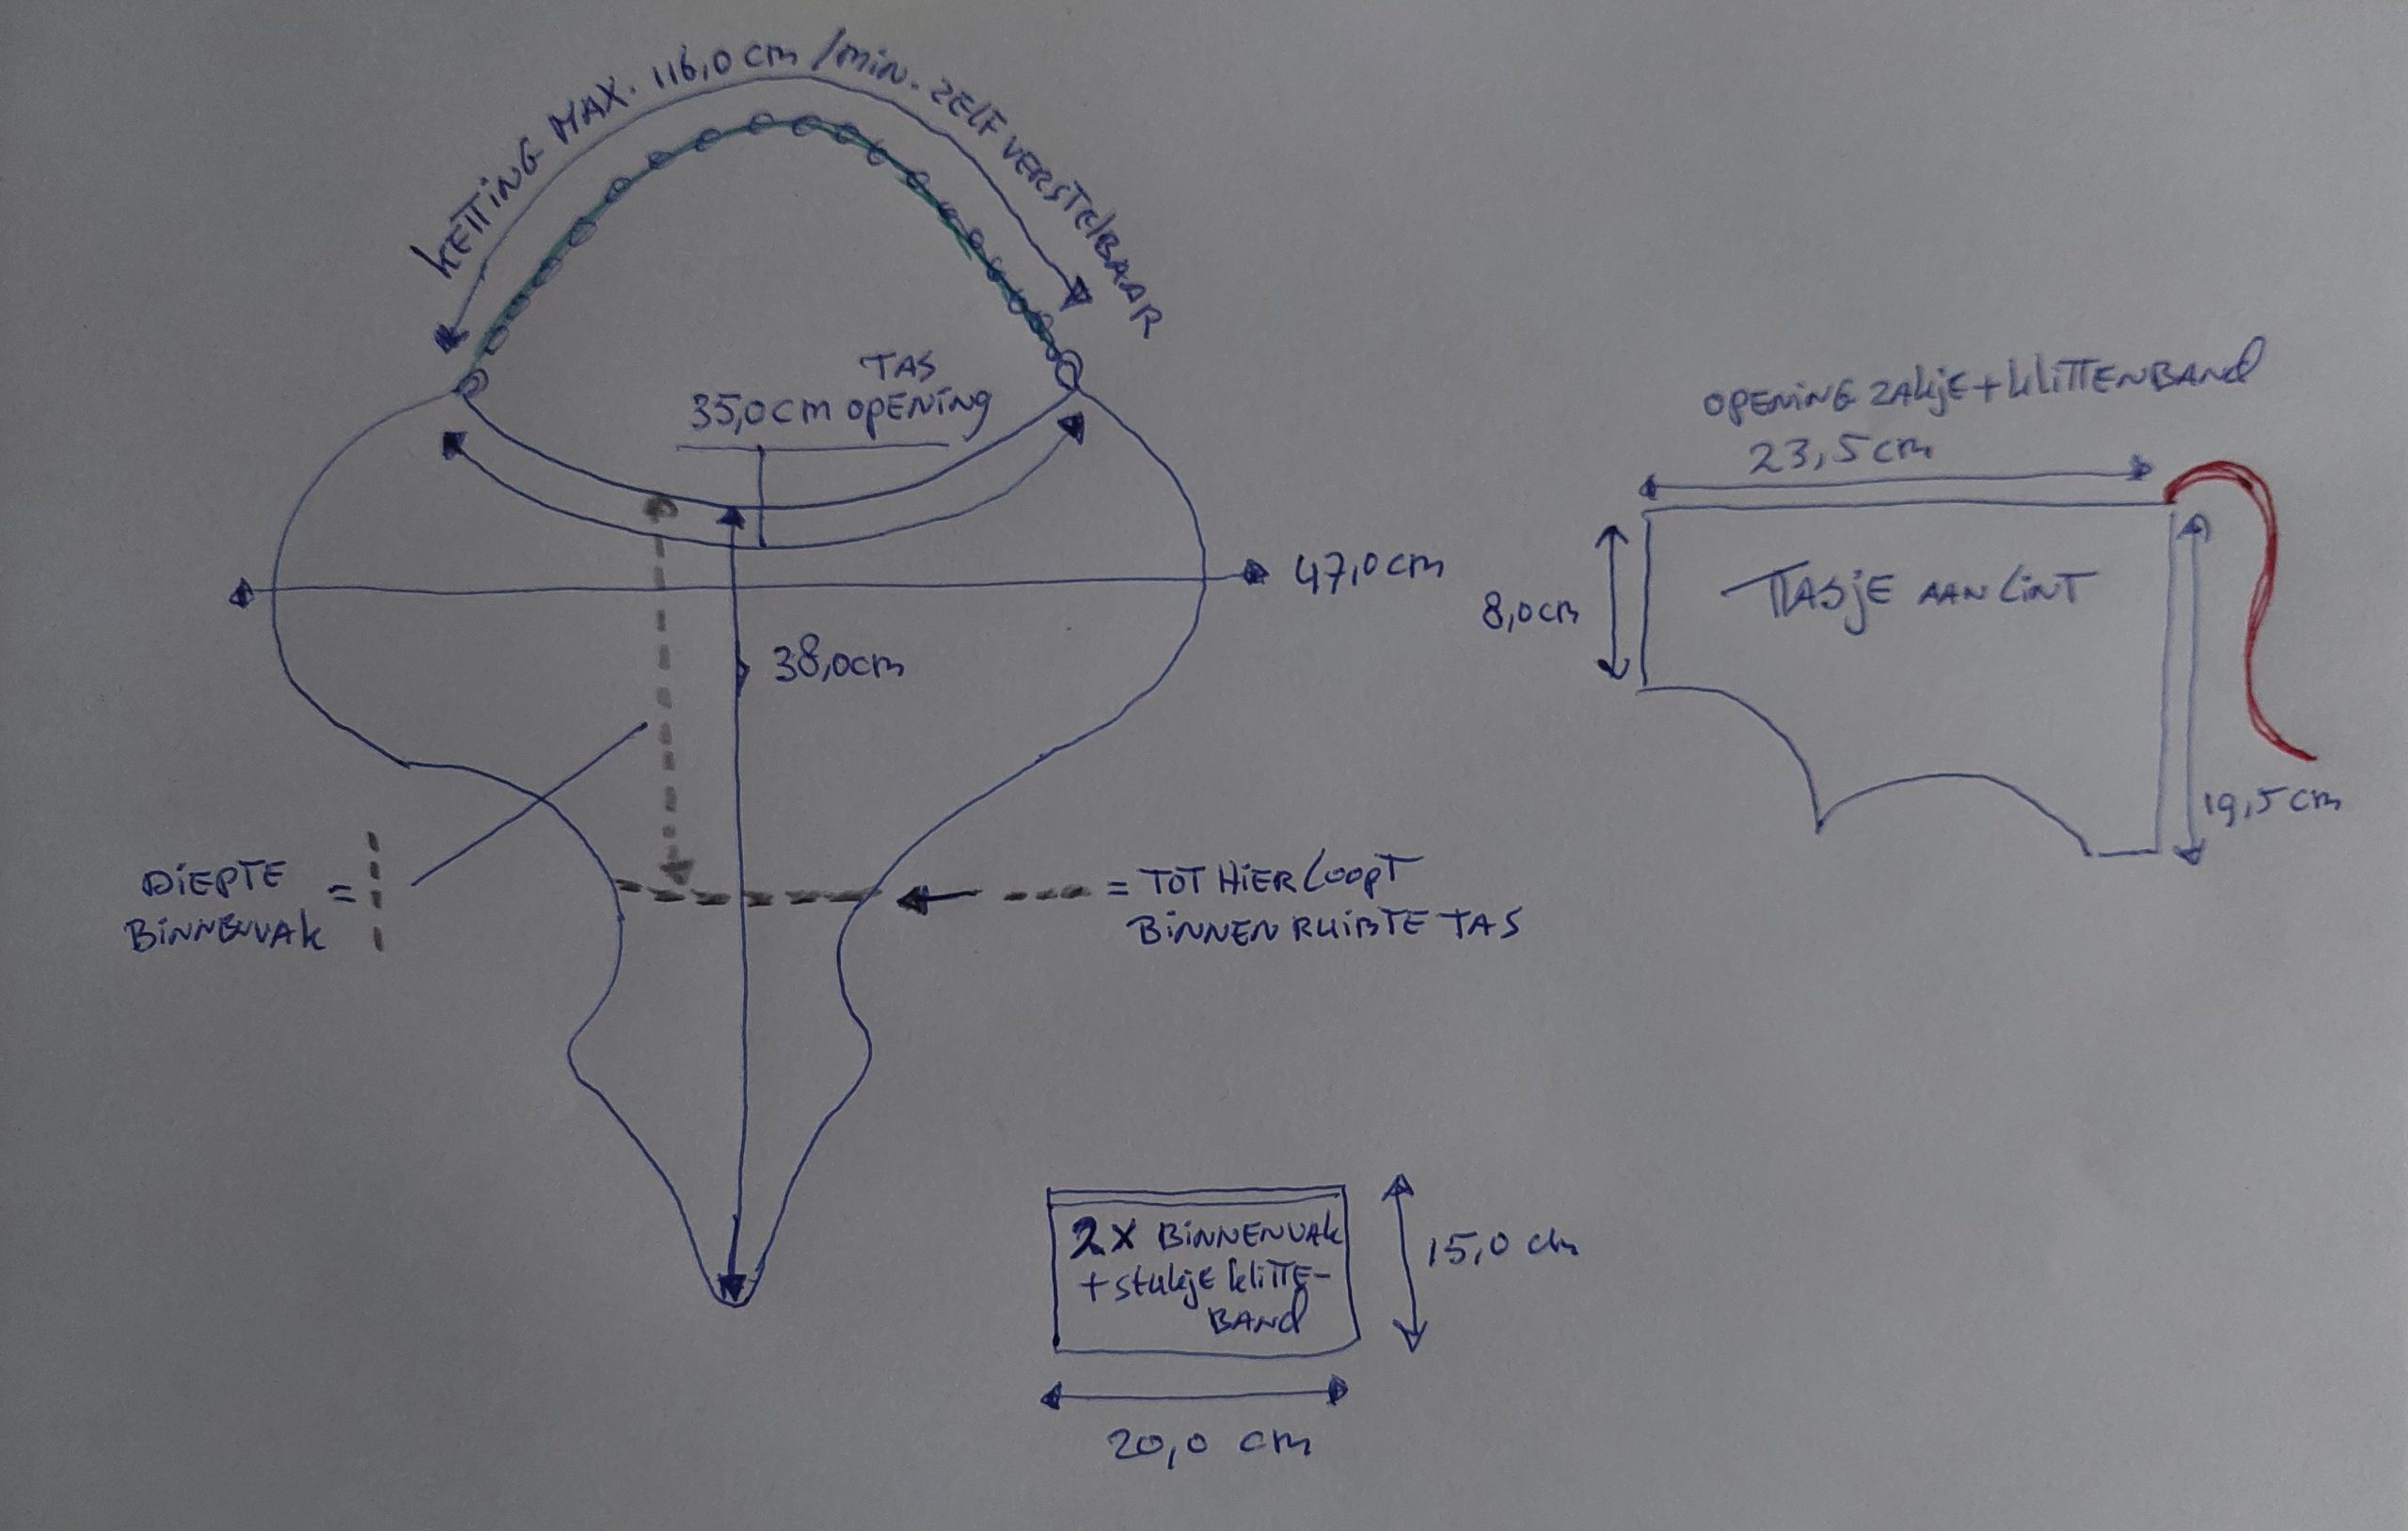 KETTING MAX. 116,0 cm / min. ZELF VERSTELBAAR
TAS
35,0 cm OPENING
47,0 cm
38,0cm
DIEPTE
BINNENVAK
=
= TOT HIER LOOPT
BINNEN RUIMTE TAS
OPENING ZAKJE + KLITTENBAND
23,5 cm
8,0cm
TASJE AAN LINT
19,5 cm
2X BINNENVAK
+ STUKJE KLITTE-
BAND
15,0 cm
20,0 cm